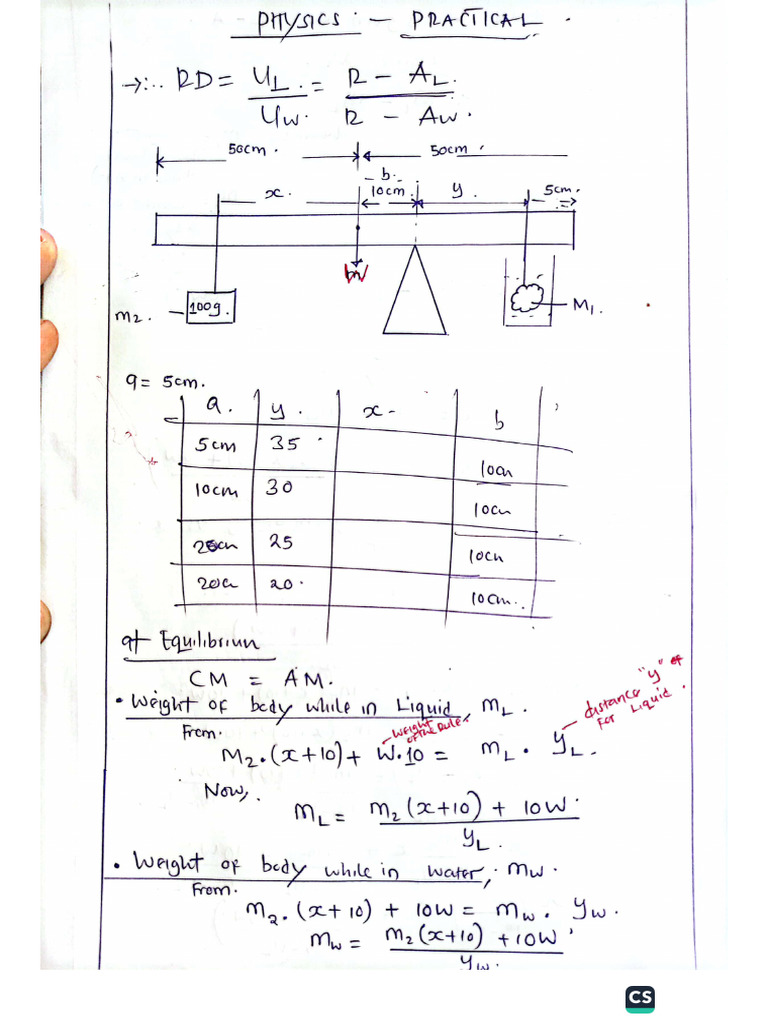 PHYSICS :- PRACTICAL.
→:.. RD = U_L. = R - A_L.
U_w. R - A_w.
50cm. 50cm.
x. b. 10cm. y. 5cm.
100g.
m2. M1.
a = 5cm.
a. y. x- b
5cm 35 10cm
10cm 30 10cm
25cm 25 10cm
20cm 20. 10cm..
at Equilibrium
CM = AM.
• Weight of body while in Liquid, M_L.
From.
weight of the Rule,
distance "y" of for Liquid.
M2.(x+10) + W.10 = m_L. y_L.
Now,
m_L = m2(x+10) + 10W.
y_L.
• Weight of body while in water, mw.
From.
m2.(x+10) + 10W = mw. yw.
mw = m2(x+10) + 10W
yw.
CS